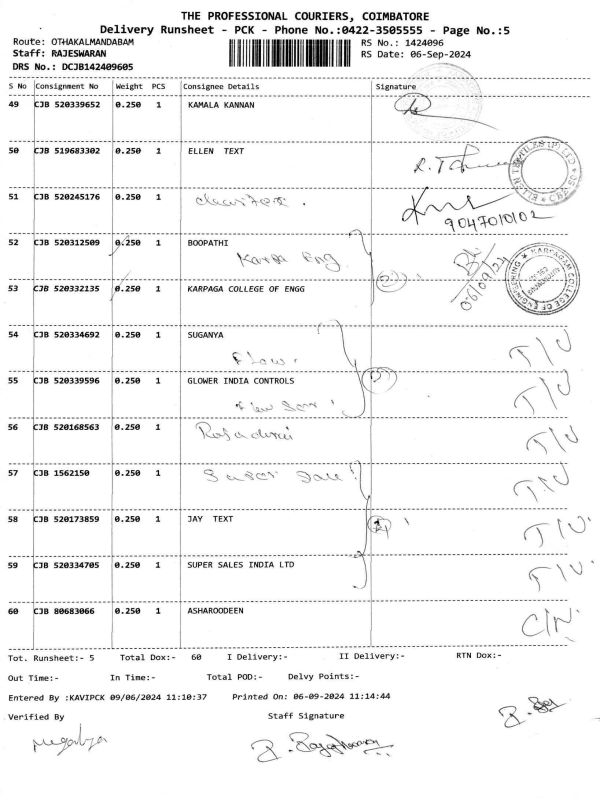 THE PROFESSIONAL COURIERS, COIMBATORE
Delivery Runsheet - PCK - Phone No.:0422-3505555 - Page No.:5
Route: OTHAKALMANDABAM RS No.: 1424096
Staff: RAJESWARAN RS Date: 06-Sep-2024
DRS No.: DCJB142409605
S No Consignment No Weight PCS Consignee Details Signature
49 CJB 520339652 0.250 1 KAMALA KANNAN
50 CJB 519683302 0.250 1 ELLEN TEXT
ELLEN TEXTILES (P) LTD
51 CJB 520245176 0.250 1
9047010102
52 CJB 520312509 0.250 1 BOOPATHI
Karpa Eng
06/09/24
KARPAGAM COLLEGE OF ENGINEERING
53 CJB 520332135 0.250 1 KARPAGA COLLEGE OF ENGG
54 CJB 520334692 0.250 1 SUGANYA T/U
Flow
55 CJB 520339596 0.250 1 GLOWER INDIA CONTROLS T/U
56 CJB 520168563 0.250 1 T/U
57 CJB 1562150 0.250 1 T/U
58 CJB 520173859 0.250 1 JAY TEXT T/U
59 CJB 520334705 0.250 1 SUPER SALES INDIA LTD T/U
60 CJB 80683066 0.250 1 ASHAROODEEN C/N
Tot. Runsheet:- 5 Total Dox:- 60 I Delivery:- II Delivery:- RTN Dox:-
Out Time:- In Time:- Total POD:- Delvy Points:-
Entered By :KAVIPCK 09/06/2024 11:10:37 Printed On: 06-09-2024 11:14:44
Verified By Staff Signature